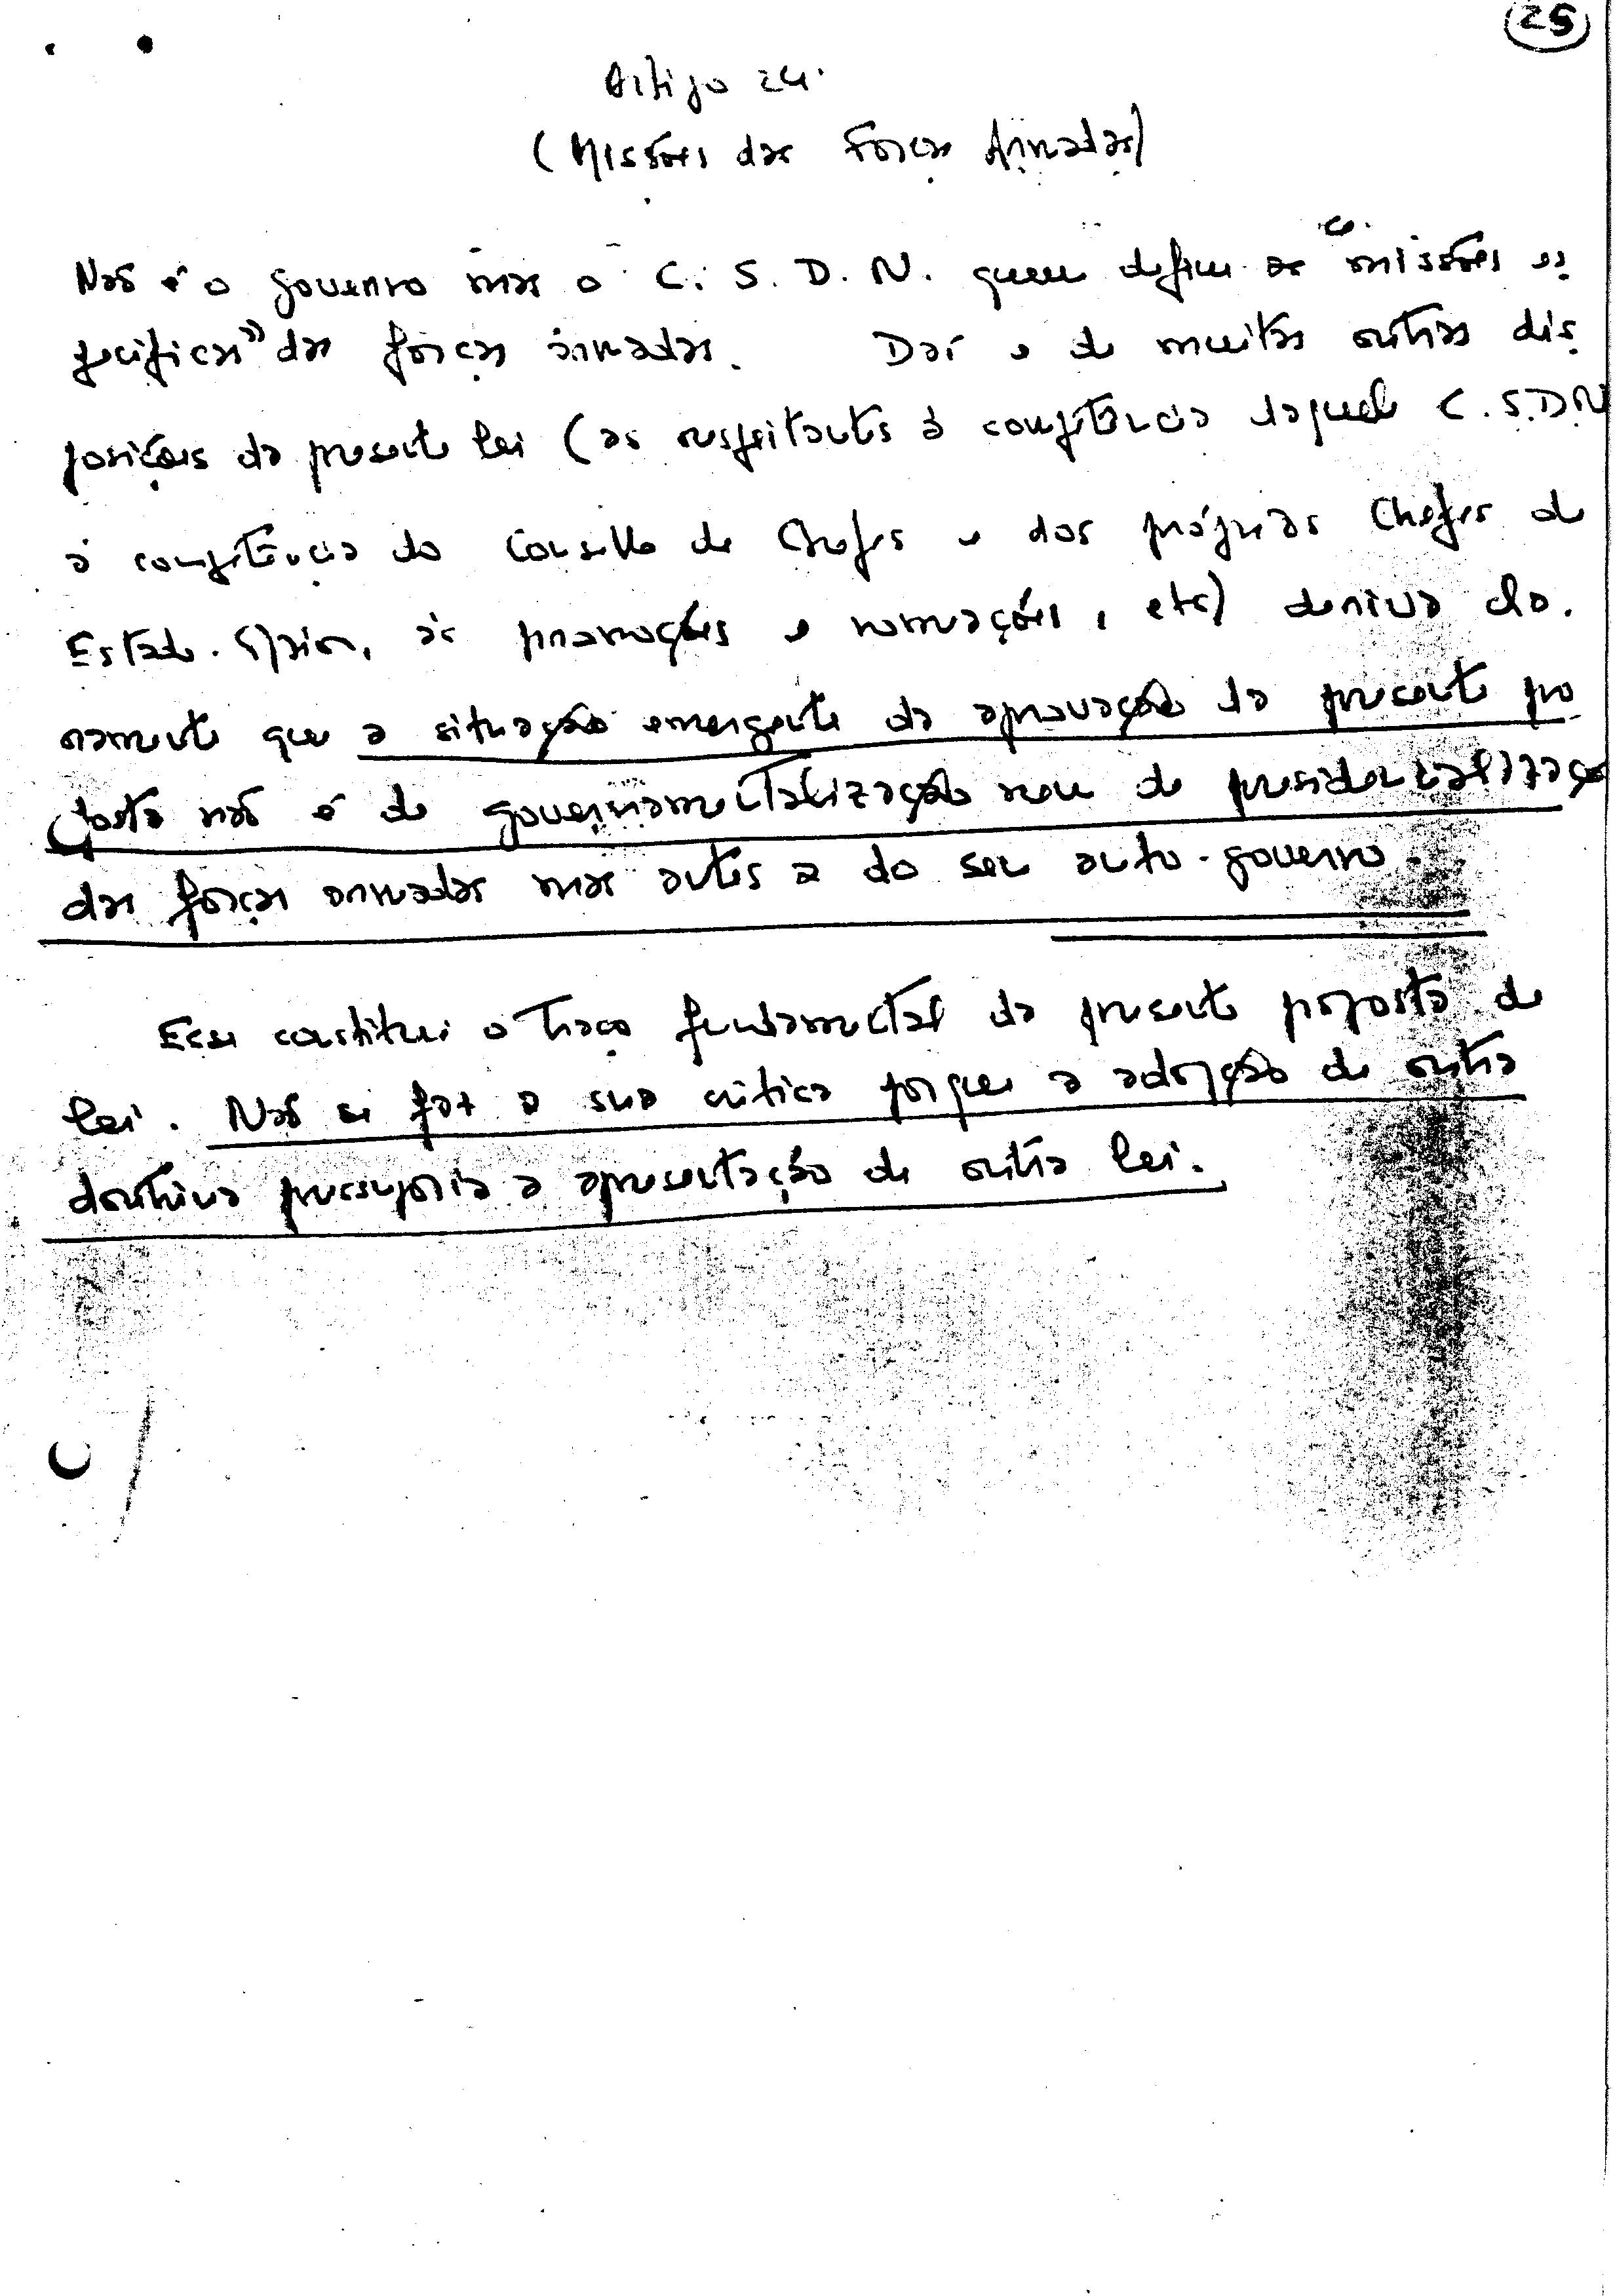 25
Artigo 24.
(Missões das Forças Armadas)
Não é o governo mas o C. S. D. N. quem define as "missões es-
pecíficas" das forças armadas. Daí e de muitas outras dis-
posições da presente lei (as respeitantes à competência daquele C.S.D.N
à competência do Conselho de Chefes e dos próprios Chefes de
Estado-Maior, às promoções e nomeações, etc) deriva cla-
ramente que a situação emergente da aprovação da presente pro-
posta não é de governamentalização nem de presidencialização
das forças armadas mas antes a do seu auto-governo.
Esse constitui o traço fundamental da presente proposta de
lei. Não se faz a sua crítica porque a adopção de outra
doutrina pressuporia a apresentação de outra lei.